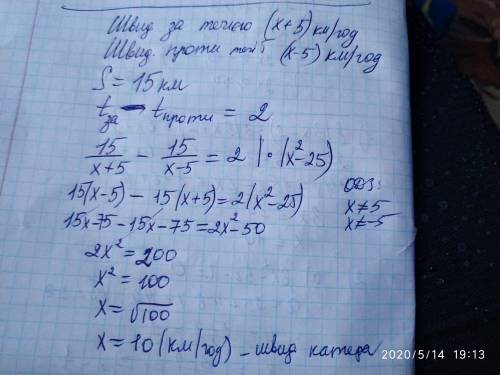 Швид за течією (x+5) км/год
Швид. проти течії (x-5) км/год
S = 15 км
t за - t проти = 2
15/(x+5) - 15/(x-5) = 2 | · (x²-25)
15(x-5) - 15(x+5) = 2(x²-25)
ОДЗ:
x≠5
x≠-5
15x-75-15x-75 = 2x²-50
2x² = 200
x² = 100
x = √100
x = 10 (км/год) - швид катера
2020/5/14 19:13